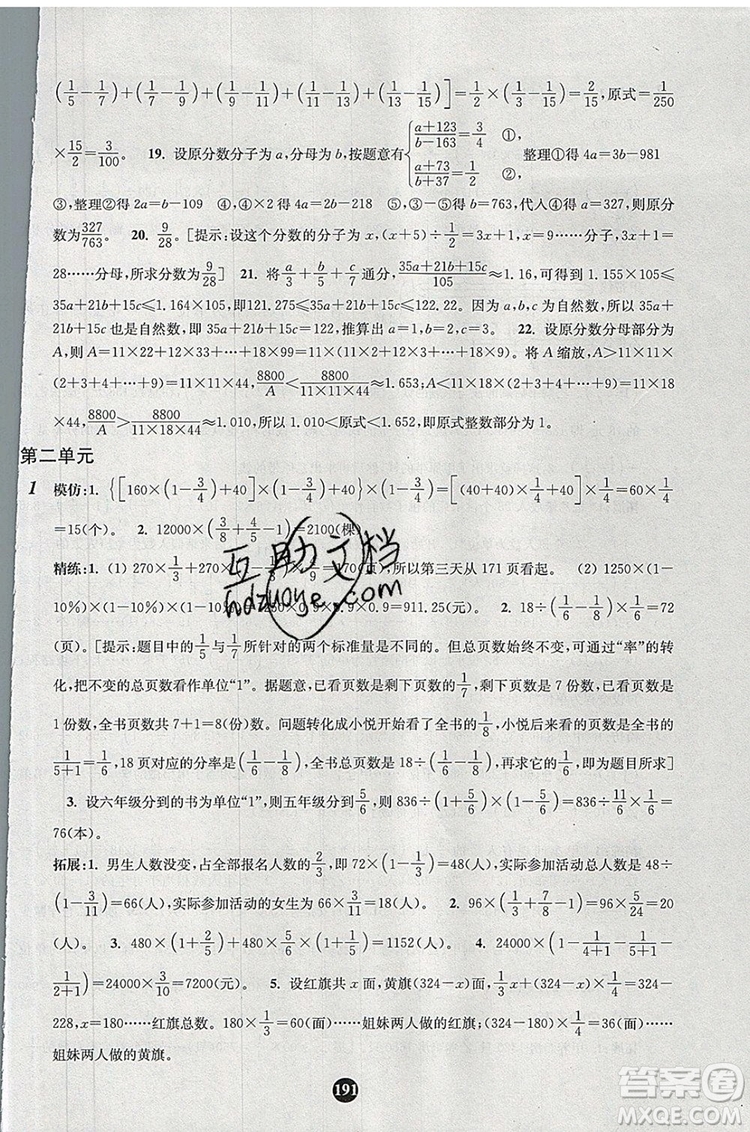 (1/5-1/7)+(1/7-1/9)+(1/9-1/11)+(1/11-1/13)+(1/13-1/15)]=1/2×(1/3-1/15)=2/15,原式=1/250
×15/2=3/100。 19. 设原分数分子为a,分母为b,按题意有{(a+123)/(b-163)=3/4 ①, (a+73)/(b+37)=1/2 ②,整理①得4a=3b-981
③,整理②得2a=b-109 ④,④×2得4a=2b-218 ⑤,③⑤得b=763,代入④得a=327,则原分
数为327/763。 20. 9/28。[提示:设这个分数的分子为x,(x+5)÷1/2=3x+1,x=9……分子,3x+1=
28……分母,所求分数为9/28] 21. 将a/3+b/5+c/7通分,(35a+21b+15c)/105≈1.16,利用1.155×105≤
35a+21b+15c≤1.164×105,即121.275≤35a+21b+15c≤122.22。因为a,b,c为自然数,所以
35a+21b+15c也是自然数,即35a+21b+15c=122,推算出a=1,b=2,c=3。 22. 设原分数分母部分为
A,则A=11×22+12×33+…+18×99=11×11×(2+3)+…+18×11×9。将A缩放,A>11×11×
(2+3+4+…+9)=11×11×44,8800/A<8800/(11×11×44)≈1.653;A<11×18×(2+3+4+…+9)=11×18
×44,8800/A>8800/(11×18×44)≈1.010,所以1.010<原式<1.652,即原式整数部分为1。
第二单元
1 模仿:1. {[160×(1-3/4)+40]×(1-3/4)+40}×(1-3/4)=[(40+40)×1/4+40]×1/4=60×1/4
=15(个)。 2. 12000×(3/8+4/5-1)=2100(棵)
精练:1. (1) 270×1/3+270×(1-1/3)×4/9=170(页),所以第三天从171页看起。 (2) 1250×(1-
10%)×(1-10%)×(1-10%)=1250×0.9×0.9×0.9=911.25(元)。 2. 18÷(1/6-1/8)×1/6=72
(页)。[提示:题目中的1/5与1/7所针对的两个标准量是不同的。但总页数始终不变,可通过“率”的转
化,把不变的总页数看作单位“1”。据题意,已看页数是剩下页数的1/7,剩下页数是7份数,已看页数是
1份数,全书页数共7+1=8(份)数。问题转化成小悦开始看了全书的1/8,小悦后来看的页数是全书的
1/(5+1)=1/6,18页对应的分率是(1/6-1/8),全书总页数是18÷(1/6-1/8),再求它的1/6,即为题目所求]
3. 设六年级分到的书为单位“1”,则五年级分到5/6,即836÷(1+5/6)×(1-5/6)=836÷11/6×1/6=
76(本)。
拓展:1. 男生人数没变,占全部报名人数的2/3,即72×(1-1/3)=48(人),实际参加活动总人数是48÷
(1-3/11)=66(人),实际参加活动的女生为66×3/11=18(人)。 2. 96×(1/3+7/8-1)=96×5/24=20
(人)。 3. 480×(1+2/5)÷(1+5/7)×(1+5/7)=1152(人)。 4. 24000×(1-1/(4+1)-1/(5+1)-
1/(2+1))=24000×3/10=7200(元)。 5. 设红旗共x面,黄旗(324-x)面,1/3x+(324-x)×5/8=324-
228,x=180……红旗总数。180×1/3=60(面)……姐妹两人做的红旗;(324-180)×1/4=36(面)……
姐妹两人做的黄旗。
191
互助文档
hdzuoye.com
答案圈
MXQE.COM